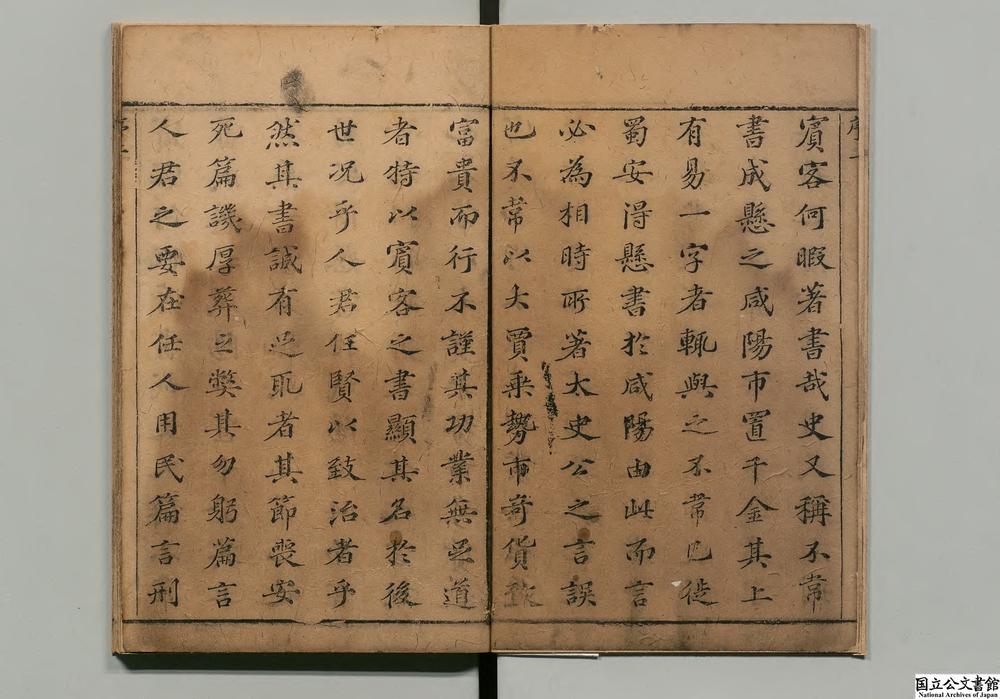 賓客何暇著書哉史又稱不韋
書成懸之咸陽市置千金其上
有易一字者輒與之不韋已徙
蜀安得懸書於咸陽由此而言
必為相時所著太史公之言誤
也不韋以大賈乘勢市奇貨致
富貴而行不謹其功業無足道
者特以賓客之書顯其名於後
世况乎人君任賢以致治者乎
然其書誠有足取者其節喪安
死篇譏厚葬之獘其勿躬篇言
人君之要在任人用民篇言刑
国立公文書館
National Archives of Japan